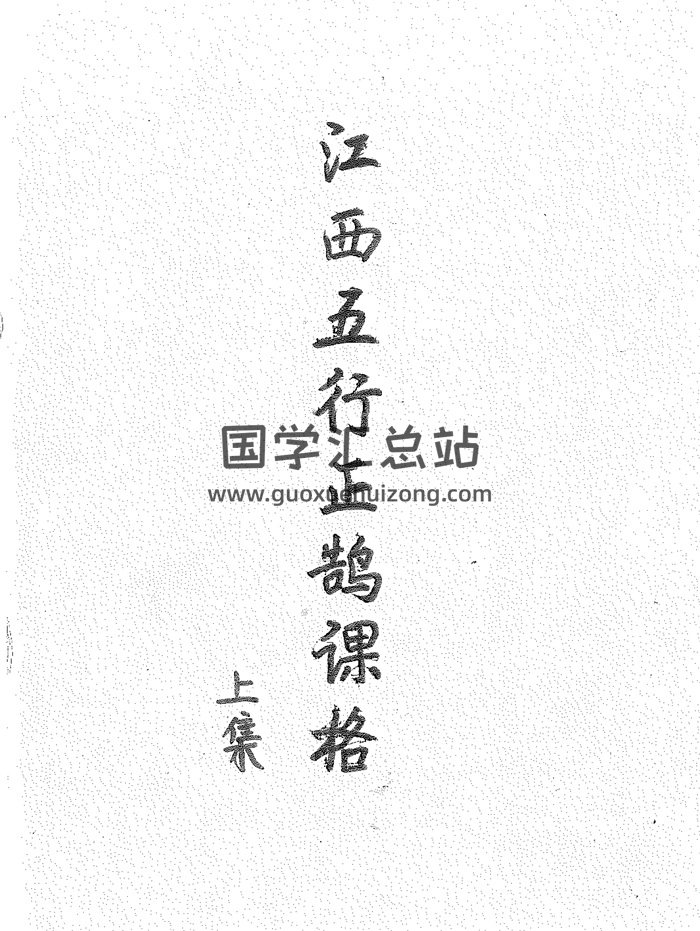 江西五行正鹄课格
上集
国学汇总站
www.guoxuehuizong.com